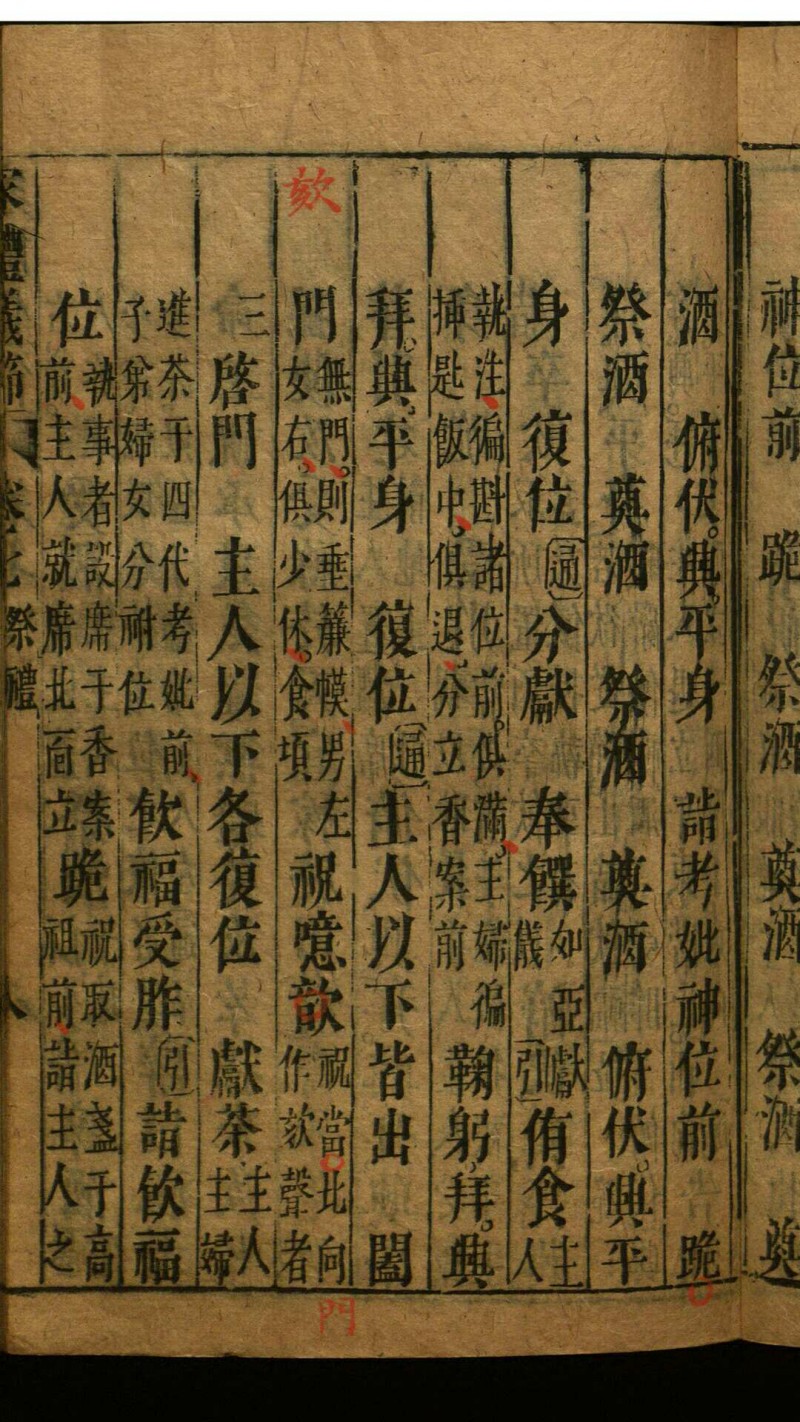 神位前 跪 祭酒 奠酒 祭酒 奠
酒 俯伏興平身 詣考妣神位前 跪
祭酒 奠酒 祭酒 奠酒 俯伏興平
身 復位 通 分獻 奉饌 如亞獻儀 引 侑食 主人
執注徧斟諸位前俱滿主婦徧
插匙飯中俱退分立香案前 鞠躬拜興
拜興平身 復位 通 主人以下皆出 闔
門 無門則垂簾幙男左女右俱少休食頃 祝噫歆 祝當北向作欬聲者
欬
門
三 啓門 主人以下各復位 獻茶 主人主婦
進茶于四代考妣前子弟婦女分祔位 飲福受胙 引 詣飲福
位 執事者設席于香案前主人就席北面立 跪 祝取酒盞于高祖前詣主人之
家禮儀節 卷七 祭禮 八